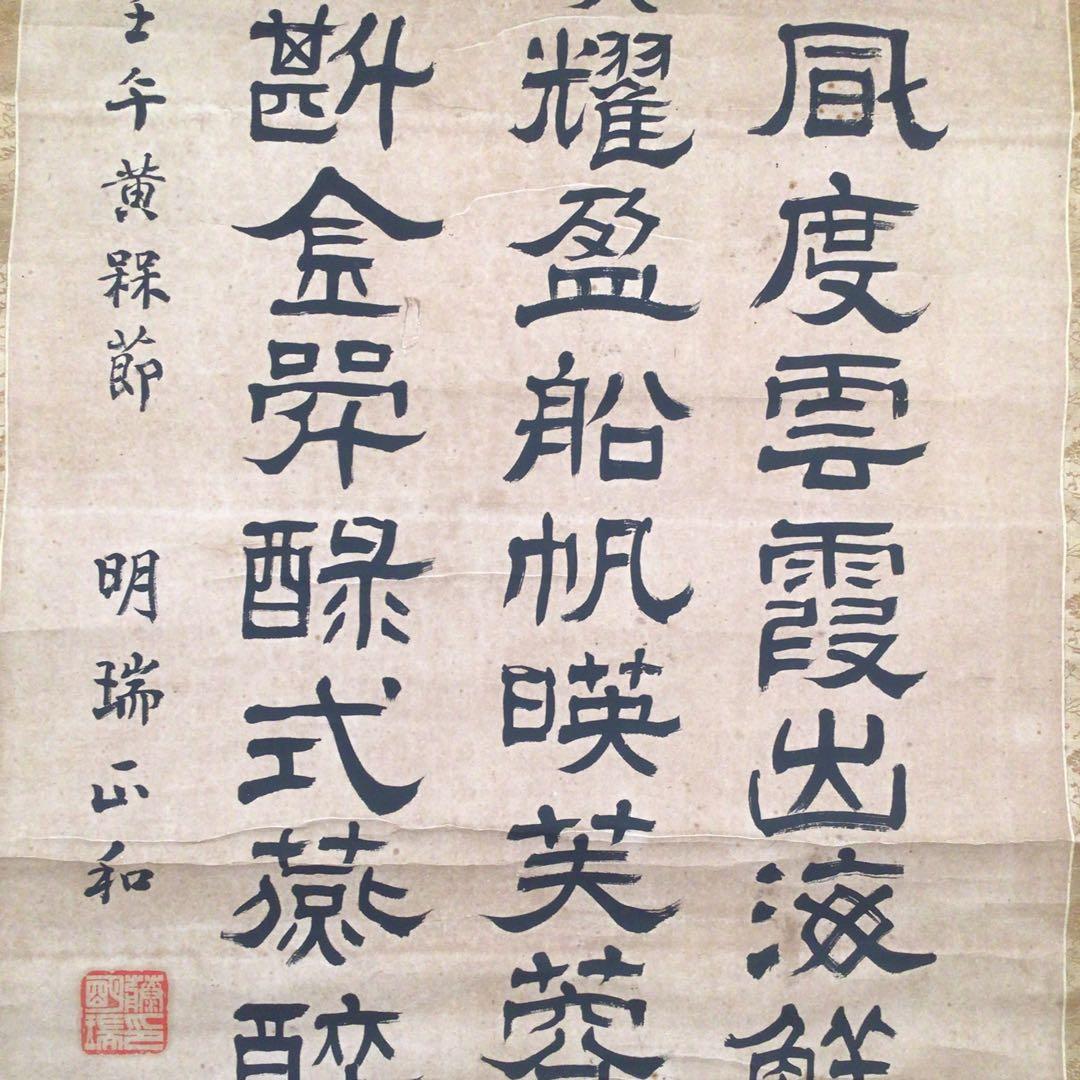 風度雲霞出海鮮
耀盈船帆暎芙蓉
斟金斝醁式燕醉
壬午黄槑節　明瑞正和